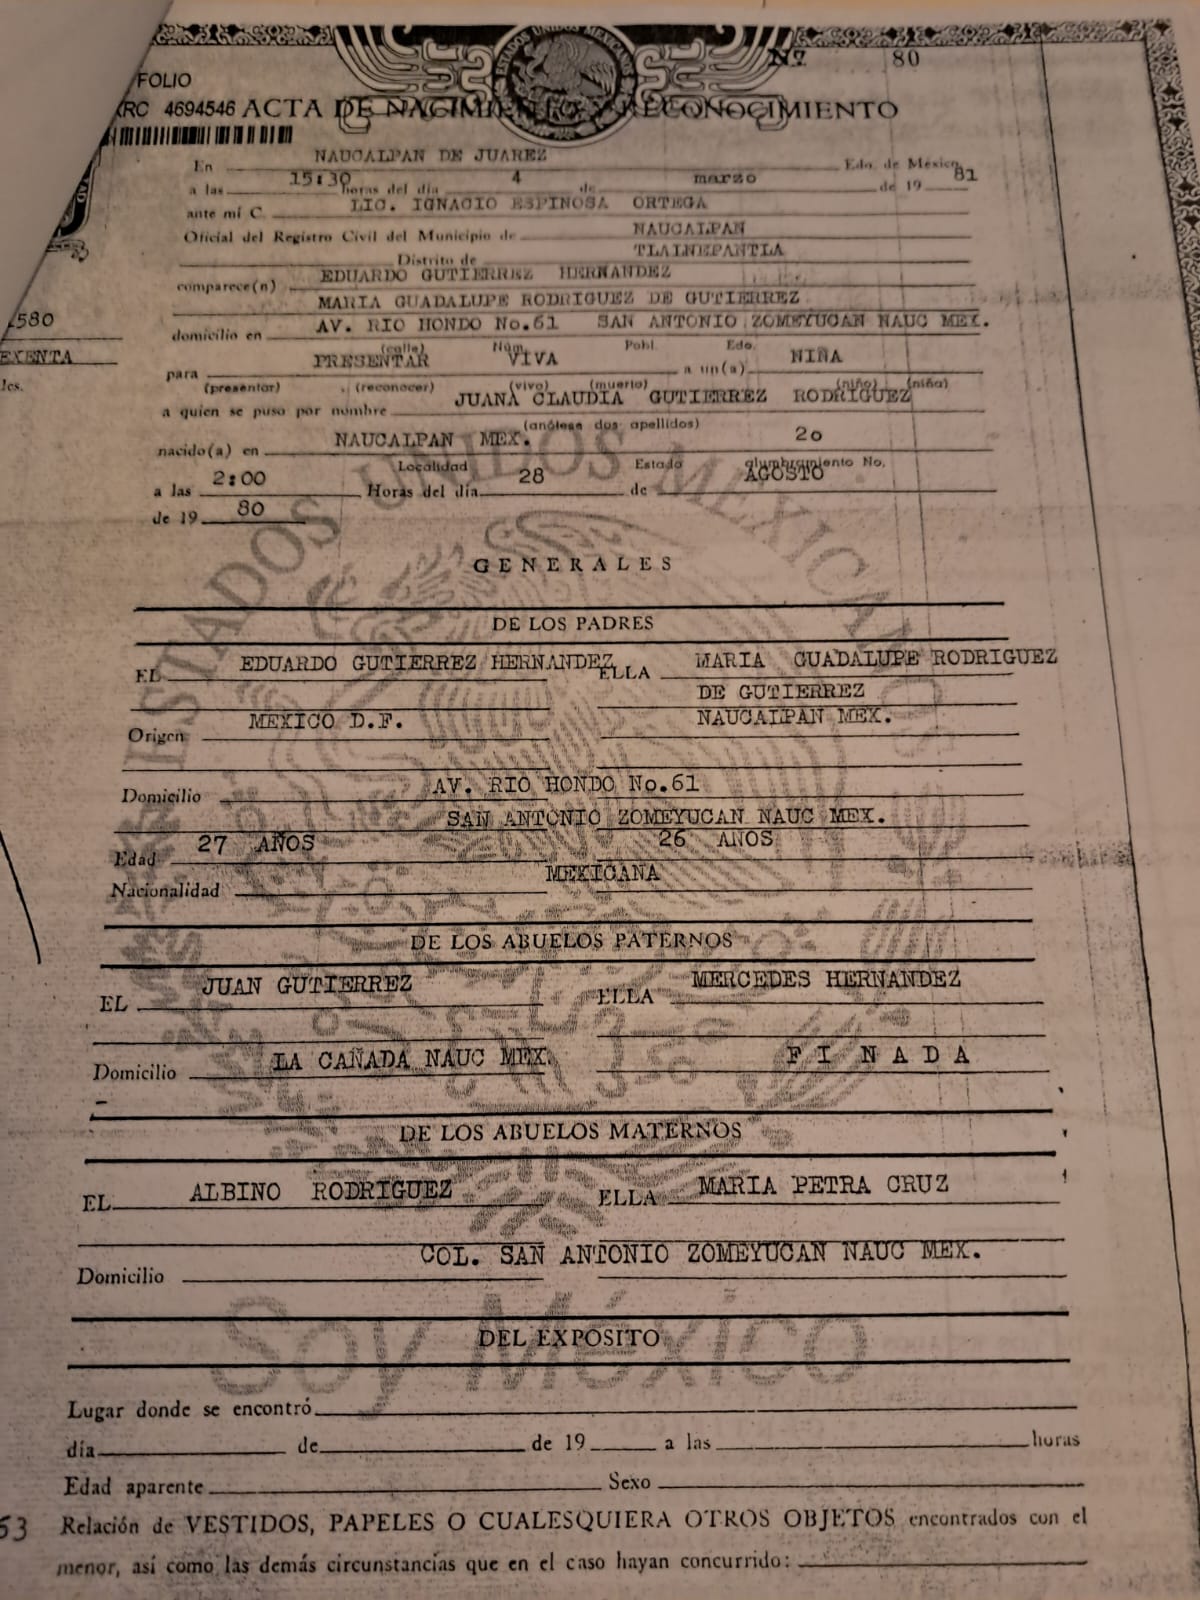 Nº 80
FOLIO
RC 4694546 ACTA DE NACIMIENTO Y RECONOCIMIENTO
ESTADOS UNIDOS MEXICANOS
En NAUCALPAN DE JUAREZ Edo. de México
a las 15:30 horas del día 4 de marzo de 19 81
ante mí C. LIC. IGNACIO ESPINOSA ORTEGA
Oficial del Registro Civil del Municipio de NAUCALPAN
Distrito de TLALNEPANTLA
comparece(n) EDUARDO GUTIERREZ HERNANDEZ
MARIA GUADALUPE RODRIGUEZ DE GUTIERREZ
domicilio en AV. RIO HONDO No.61 SAN ANTONIO ZOMEYUCAN NAUC MEX.
(calle) Núm. Pobl. Edo.
para PRESENTAR VIVA a un(a) NIÑA
(presentar) (reconocer) (vivo) (muerto) (niño) (niña)
a quien se puso por nombre JUANA CLAUDIA GUTIERREZ RODRIGUEZ
(anótese dos apellidos)
nacido(a) en NAUCALPAN MEX. 2o
Localidad Estado alumbramiento No.
a las 2:00 Horas del día 28 de AGOSTO
de 19 80
580
EXENTA
les.
GENERALES
DE LOS PADRES
EL EDUARDO GUTIERREZ HERNANDEZ ELLA MARIA GUADALUPE RODRIGUEZ
DE GUTIERREZ
Origen MEXICO D.F. NAUCALPAN MEX.
Domicilio AV. RIO HONDO No.61
SAN ANTONIO ZOMEYUCAN NAUC MEX.
Edad 27 AÑOS 26 AÑOS
Nacionalidad MEXICANA
DE LOS ABUELOS PATERNOS
EL JUAN GUTIERREZ ELLA MERCEDES HERNANDEZ
Domicilio LA CAÑADA NAUC MEX. FINADA
DE LOS ABUELOS MATERNOS
EL ALBINO RODRIGUEZ ELLA MARIA PETRA CRUZ
Domicilio COL. SAN ANTONIO ZOMEYUCAN NAUC MEX.
Soy México
DEL EXPOSITO
Lugar donde se encontró
día de de 19 a las horas
Edad aparente Sexo
53 Relación de VESTIDOS, PAPELES O CUALESQUIERA OTROS OBJETOS encontrados con el
menor, así como las demás circunstancias que en el caso hayan concurrido: